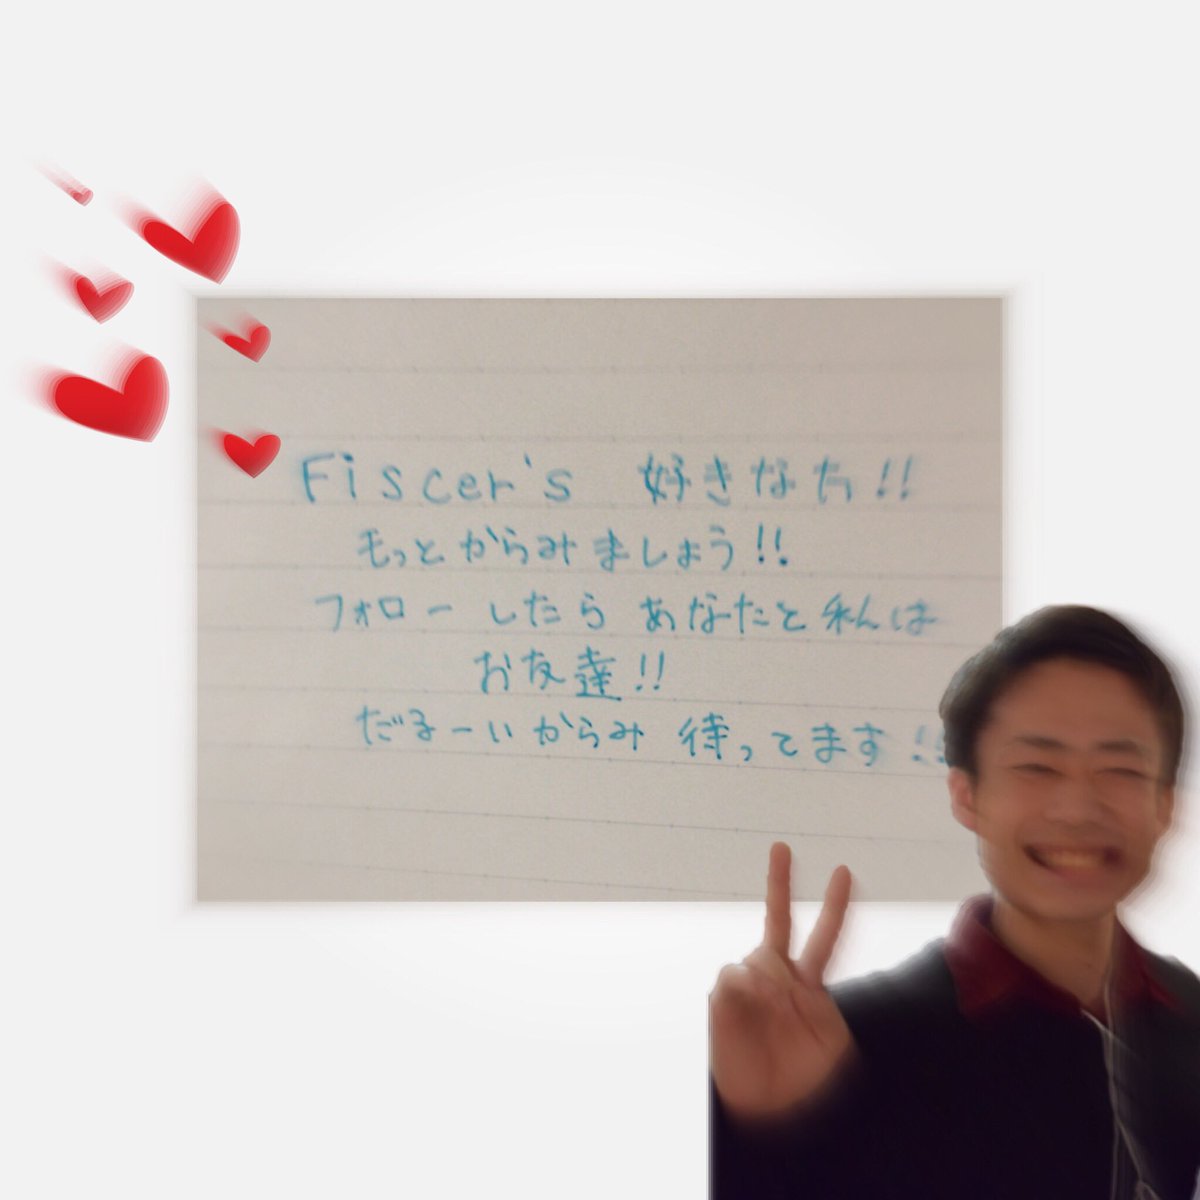 Fiscer's 好きな方!!
もっとからみましょう!!
フォローしたら あなたと私は
お友達!!
だるーいからみ 待ってます!!